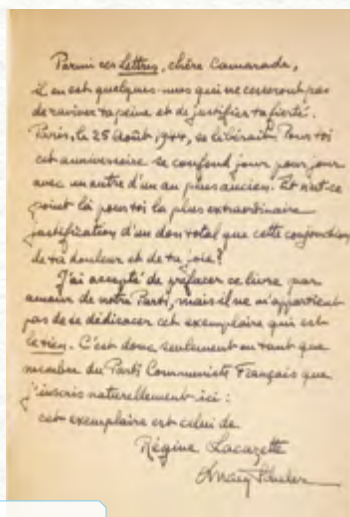 Parmi ces Lettres, chère Camarade,
il en est quelques-unes qui ne cesseront pas
de raviver ta peine et de justifier ta fierté.
Paris, le 25 Août, 1944, se libérait. Pour toi
cet anniversaire se confond jour pour jour
avec un autre d'un an plus ancien. Et n'est-ce
point là pour toi la plus extraordinaire
justification d'un don total que cette conjonction
de ta douleur et de ta joie?
J'ai accepté de préfacer ce livre par
amour de notre Parti, mais il ne m'appartient
pas de te dédicacer cet exemplaire qui est
le tien. C'est donc seulement en tant que
membre du Parti Communiste Français que
j'inscris naturellement ici :
cet exemplaire est celui de
Régine Lacazette